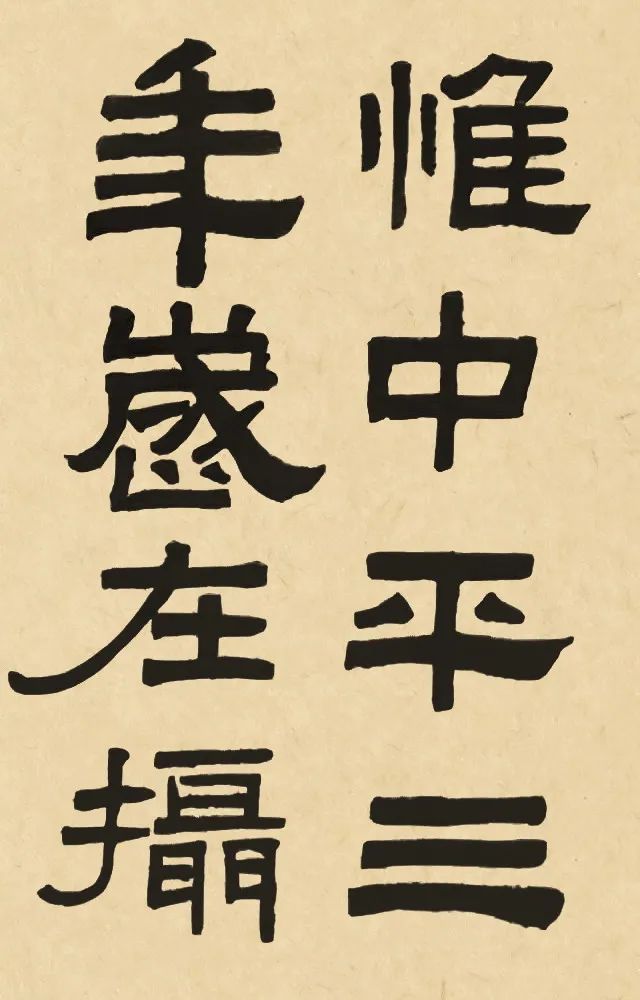 惟中平三
年歲在攝